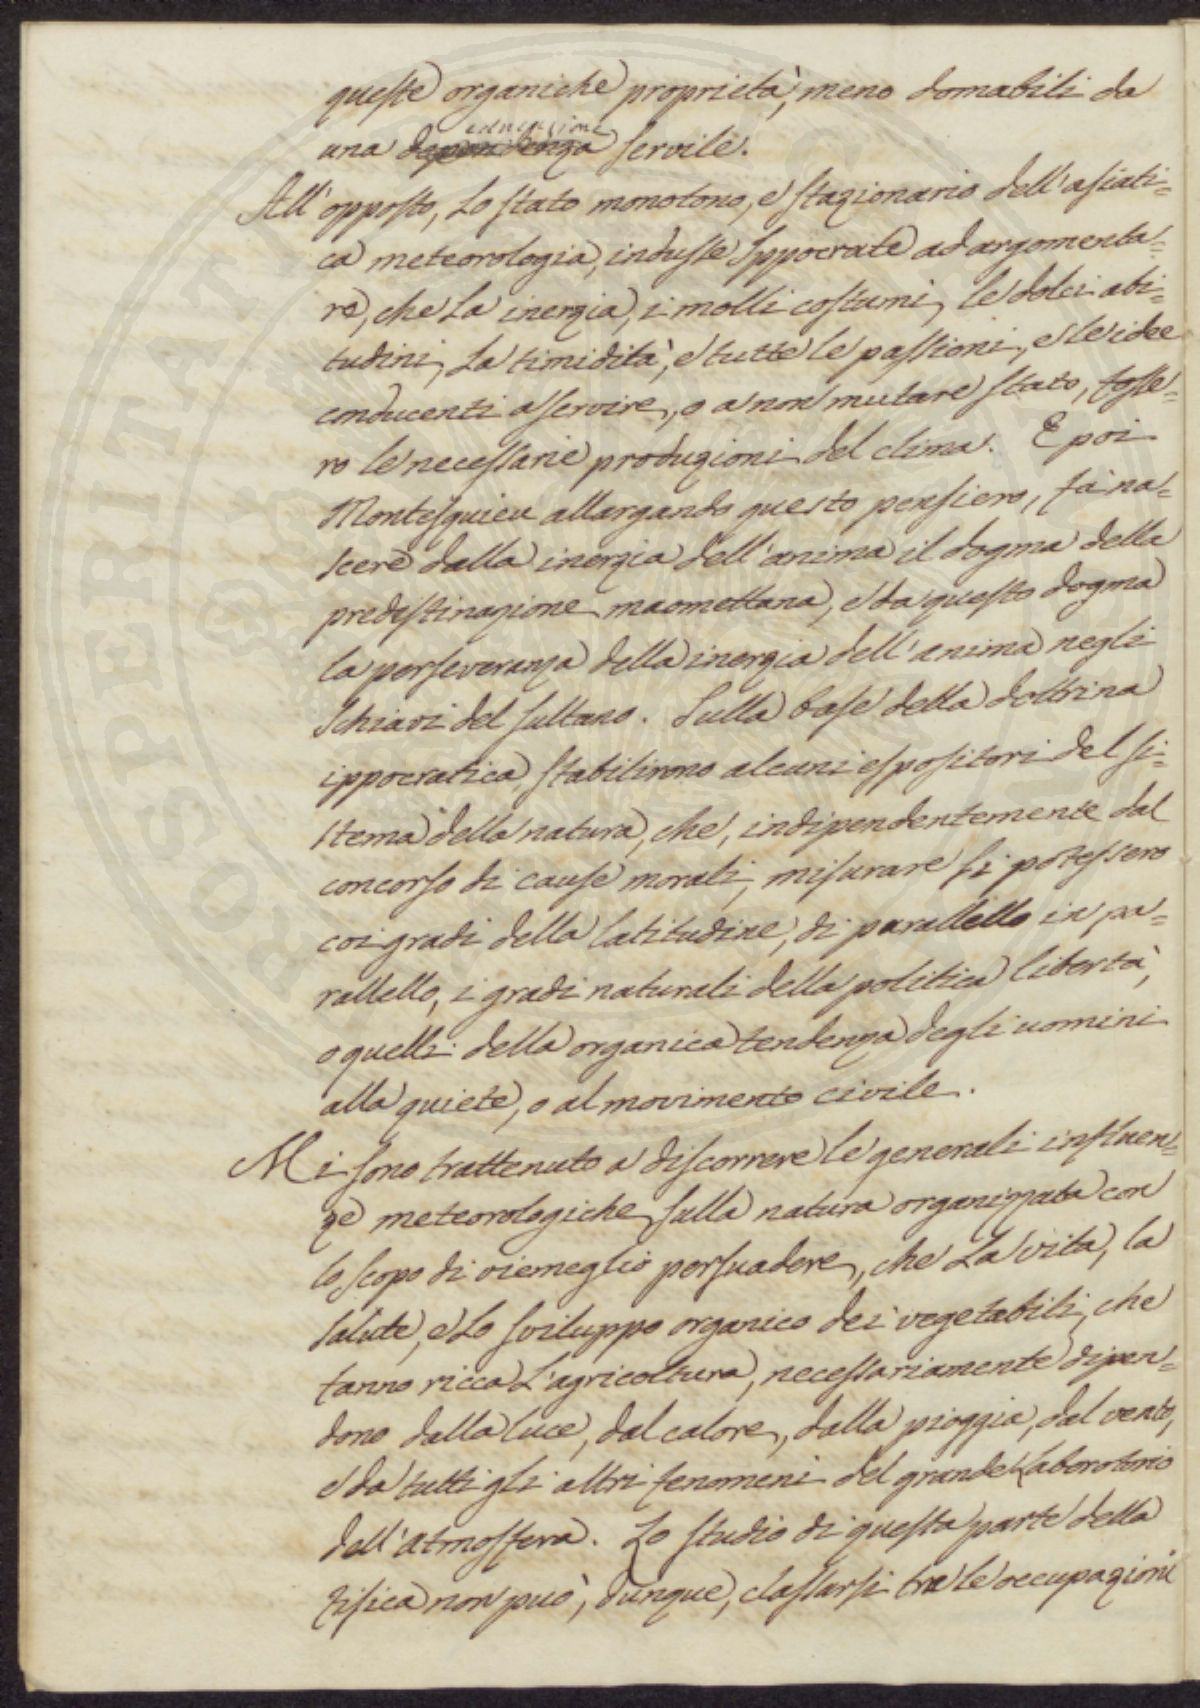 queste organiche proprietà, meno domabili da
educazione
una dependenza servile.
All'opposto, Lo stato monotono, e stazionario dell'asiati=
ca meteorologia, indusse Ippocrate ad argomenta=
re, che La inerzia, i molli costumi, le dolci abi=
tudini, La timidità, e tutte le passioni, e le idee
conducenti a servire, o a non mutare stato, fosse=
ro le necessarie produzioni del clima. E poi
Montesquieu allargando questo pensiero, fa na=
scere dalla inerzia dell'anima il dogma della
predestinazione maomettana, e da questo dogma
la perseveranza della inerzia dell'anima negli
Schiavi del Sultano. Sulla base della dottrina
ippocratica, stabilirono alcuni espositori del si=
stema della natura, che, indipendentemente dal
concorso di cause morali, misurare si potessero
coi gradi della latitudine, di parallello in pa=
rallello, i gradi naturali della politica libertà,
o quelli della organica tendenza degli uomini
alla quiete, o al movimento civile.
Mi sono trattenuto a discorrere le generali influen=
ze meteorologiche sulla natura organizzata con
lo scopo di viemeglio persuadere, che La vita, la
salute, e Lo sviluppo organico dei vegetabili, che
fanno ricca L'agricoltura, necessariamente dipen=
dono dalla luce, dal calore, dalla pioggia, dal vento,
e da tutti gli altri fenomeni del grande Laborotorio
dell'atmosfera. Lo studio di questa parte della
Fisica non può, dunque, classarsi tra le occupazioni
PROSPERITAT